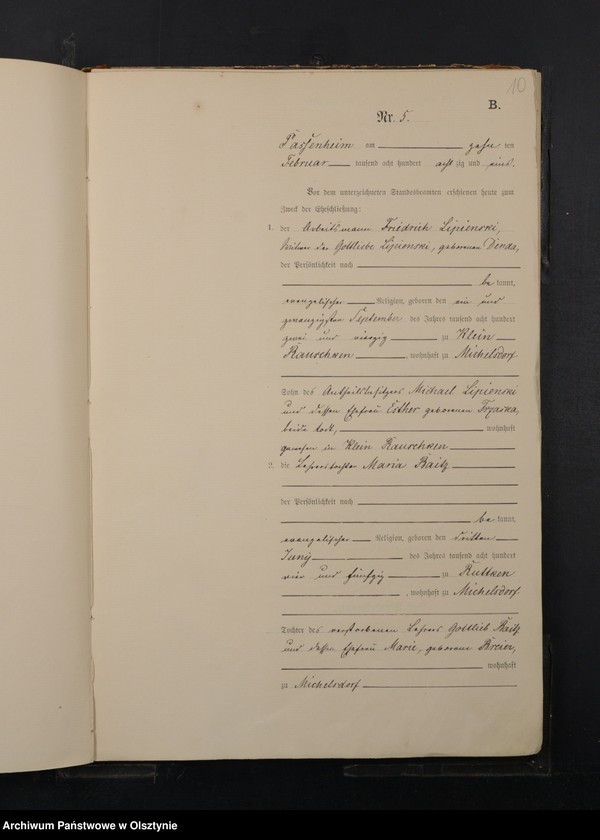 10
B.
Nr. 5.
Passenheim am zehn ten
Februar tausend acht hundert acht zig und eins.
Vor dem unterzeichneten Standesbeamten erschienen heute zum
Zweck der Eheschließung:
1. der Arbeitsmann Friedrich Lipienski,
Wittwer der Gottliebe Lipienski, geborenen Denda,
der Persönlichkeit nach
be kannt,
evangelischer Religion, geboren den ein und
zwanzigsten September des Jahres tausend acht hundert
zwei und vierzig zu Klein
Rauschken, wohnhaft zu Michelsdorf
Sohn des Antheilsbesitzers Michael Lipienski
und dessen Ehefrau Esther geborenen Trzaska,
beide todt, wohnhaft
gewesen in Klein Rauschken
2. die Lehrerstochter Maria Baitz
der Persönlichkeit nach
be kannt,
evangelischer Religion, geboren den dritten
Juny des Jahres tausend acht hundert
vier und fünfzig zu Ruttken
, wohnhaft zu Michelsdorf
Tochter des verstorbenen Lehrers Gottlieb Baitz
und dessen Ehefrau Marie, geborene
wohnhaft
zu Michelsdorf
Archiwum Państwowe w Olsztynie